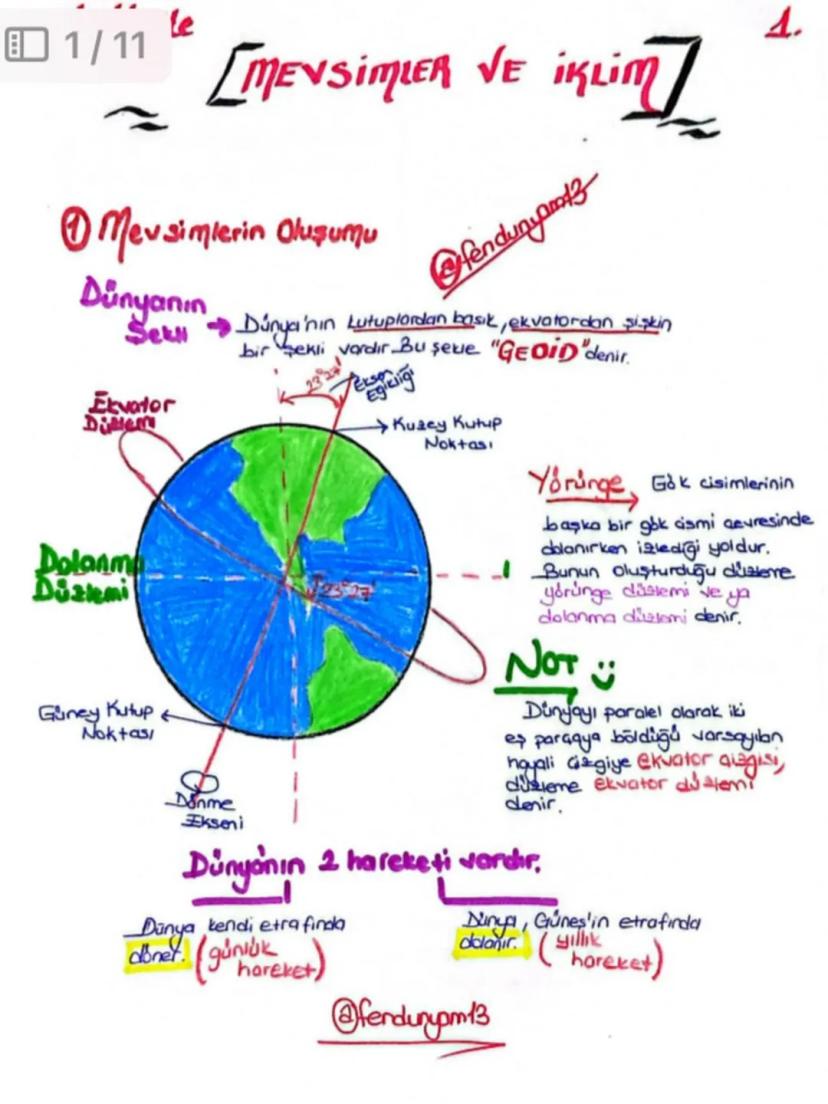 1 / 11
1.
[MEVSİMLER VE İKLİM]
① Mevsimlerin Oluşumu
@fendunyam13
Dünyanın
Şekli → Dünya'nın kutuplardan basık, ekvatordan şişkin
bir şekli vardır. Bu şekle "GEOİD" denir.
23°27'
Eksen
Eğikliği
Ekvator
Düzlemi
Kuzey Kutup
Noktası
Yörünge → Gök cisimlerinin
başka bir gök cismi çevresinde
dolanırken izlediği yoldur.
Bunun oluşturduğu düzleme
yörünge düzlemi ve ya
dolanma düzlemi denir.
Dolanma
Düzlemi
23°27'
NOT
Dünyayı paralel olarak iki
eş parçaya böldüğü varsayılan
hayali çizgiye ekvator çizgisi,
düzleme ekvator düzlemi
denir.
Güney Kutup
Noktası
Dönme
Ekseni
Dünya'nın 2 hareketi vardır.
Dünya kendi etrafında
döner. (günlük
hareket)
Dünya, Güneş'in etrafında
dolanır. (yıllık
hareket)
@fendunyam13